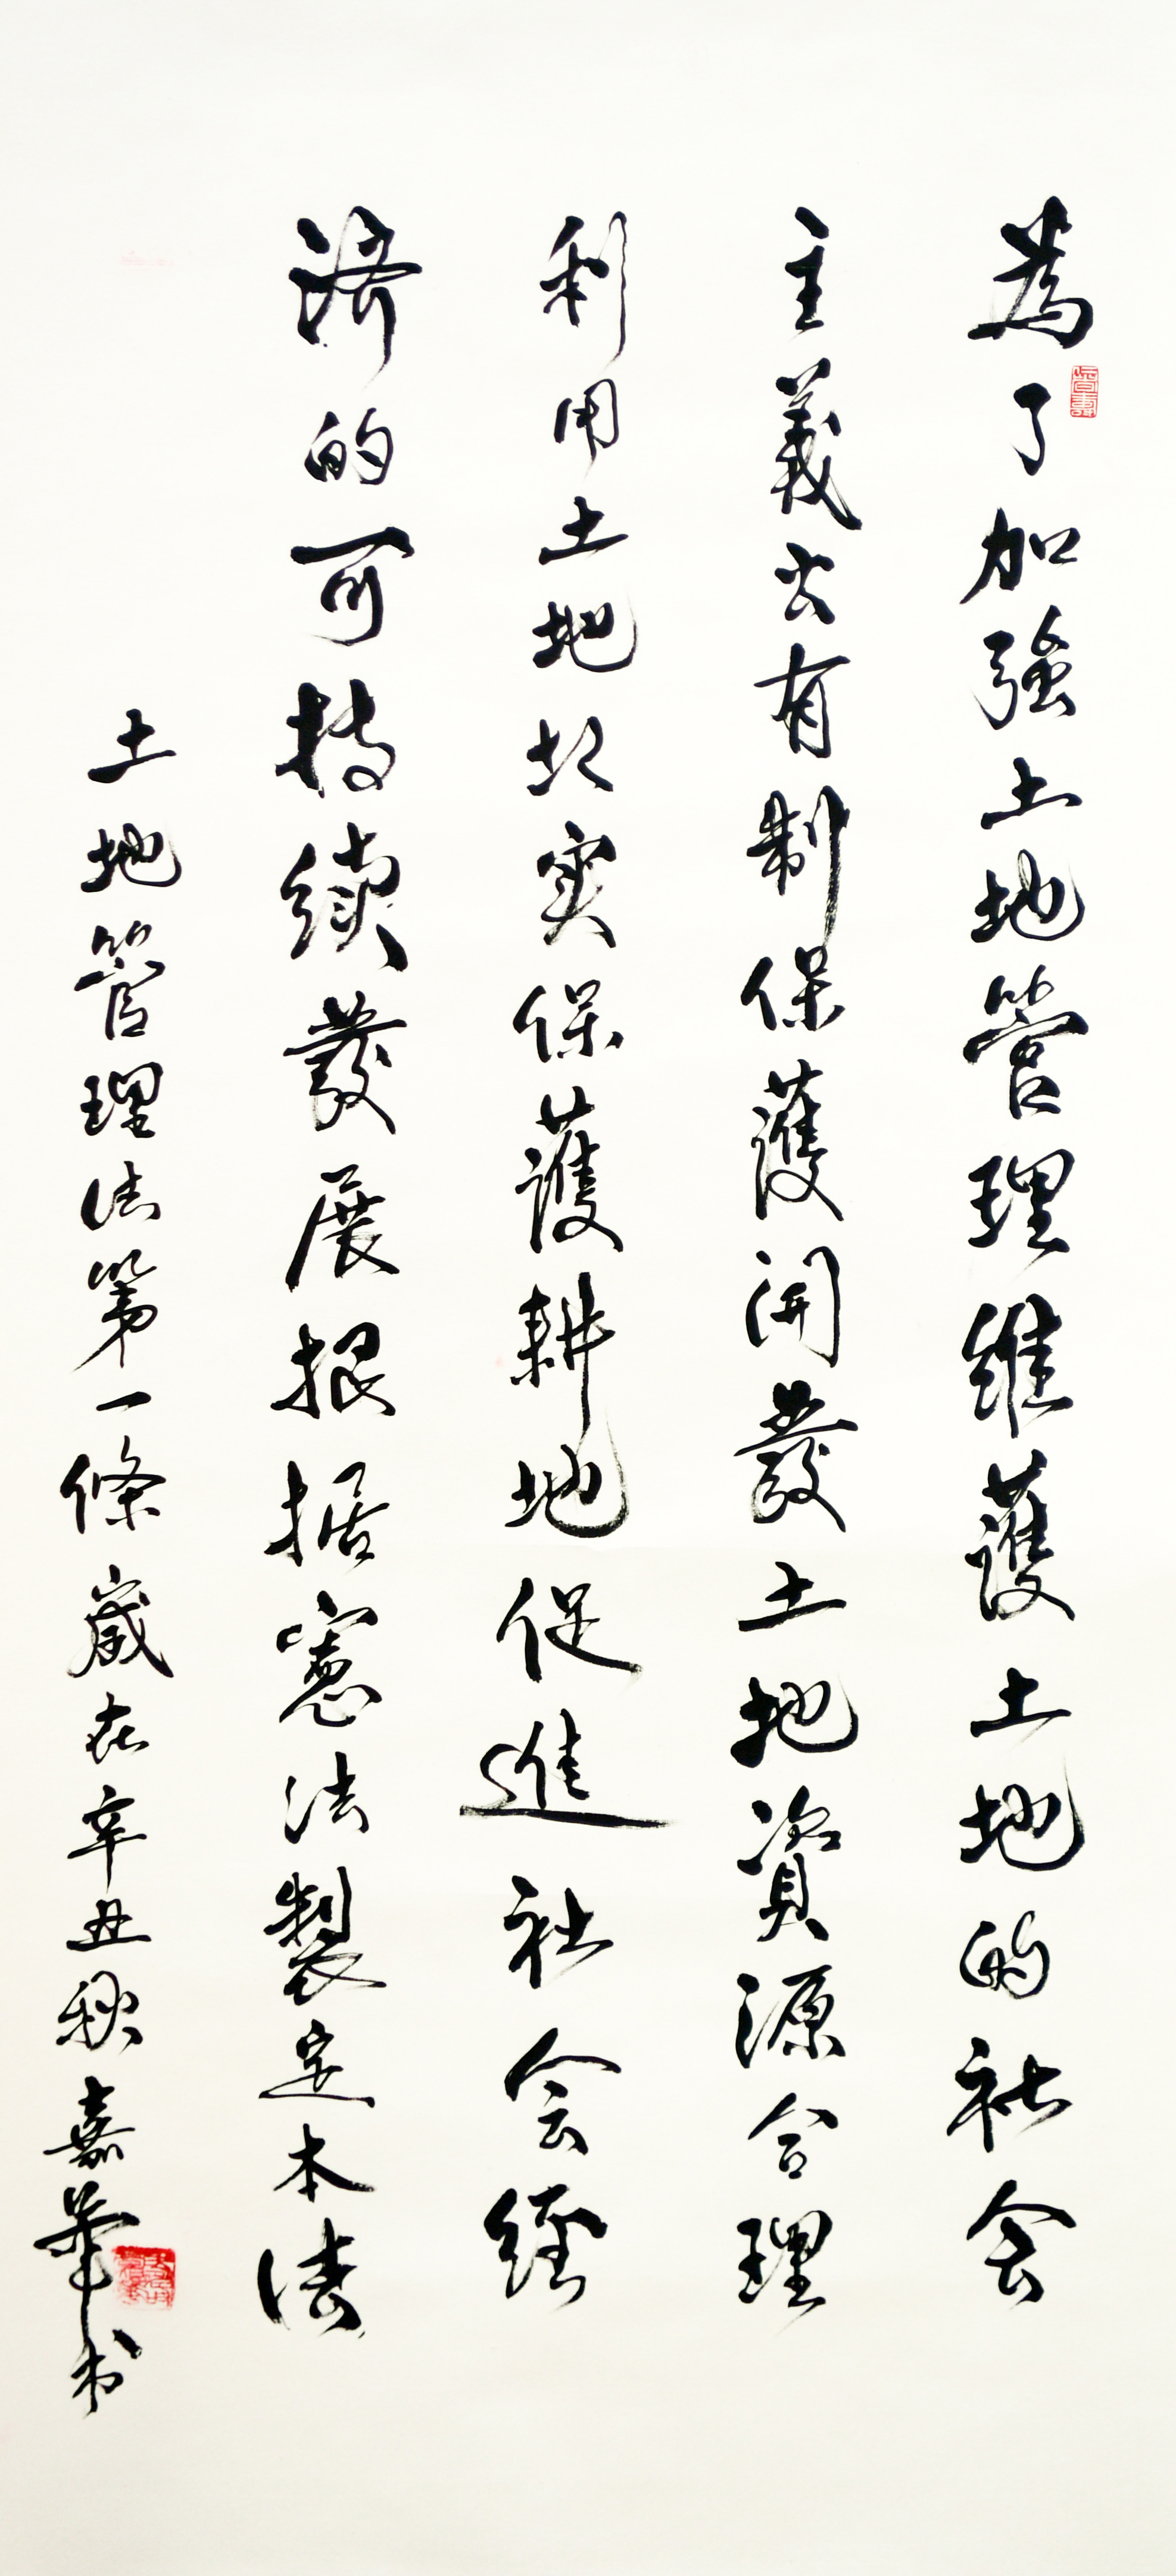 為了加強土地管理維護土地的社会
主義公有制保護開發土地資源合理
利用土地切实保護耕地促進社会經
濟的可持續發展根据憲法製定本法
土地管理法第一條歲在辛丑秋嘉華书